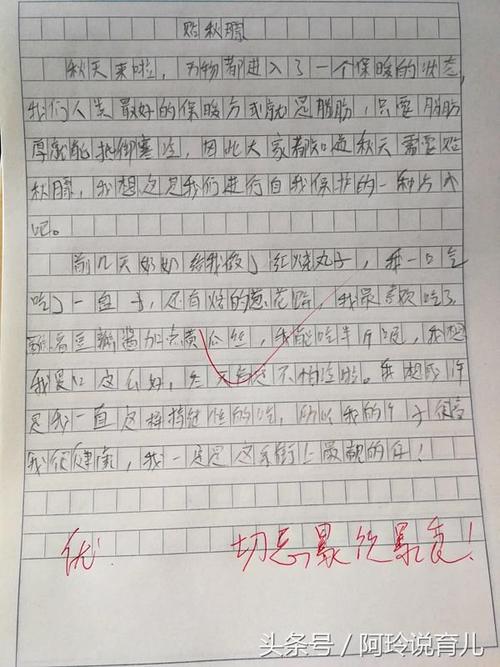 贴秋膘
秋天来啦，万物都进入了一个保暖的状态，
我们人类最好的保暖方式就是脂肪，只要脂肪
厚就能抵御寒冷，因此大家都知道秋天需要贴
秋膘，我想这是我们进行自我保护的一种方式
吧。
前几天奶奶给我做了红烧丸子，我一口气
吃了一盘子，还有烙的葱花饼，我最喜欢吃了
豆瓣酱加点黄瓜丝，我能吃半斤呢，我想
我胃口这么好，冬天肯定不怕冷啦。我想
是我一直这样持续性的吃，所以我的
我很健康，我一定是这条街上最靓的仔！
优
切忌暴饮暴食！
头条号 / 阿玲说育儿